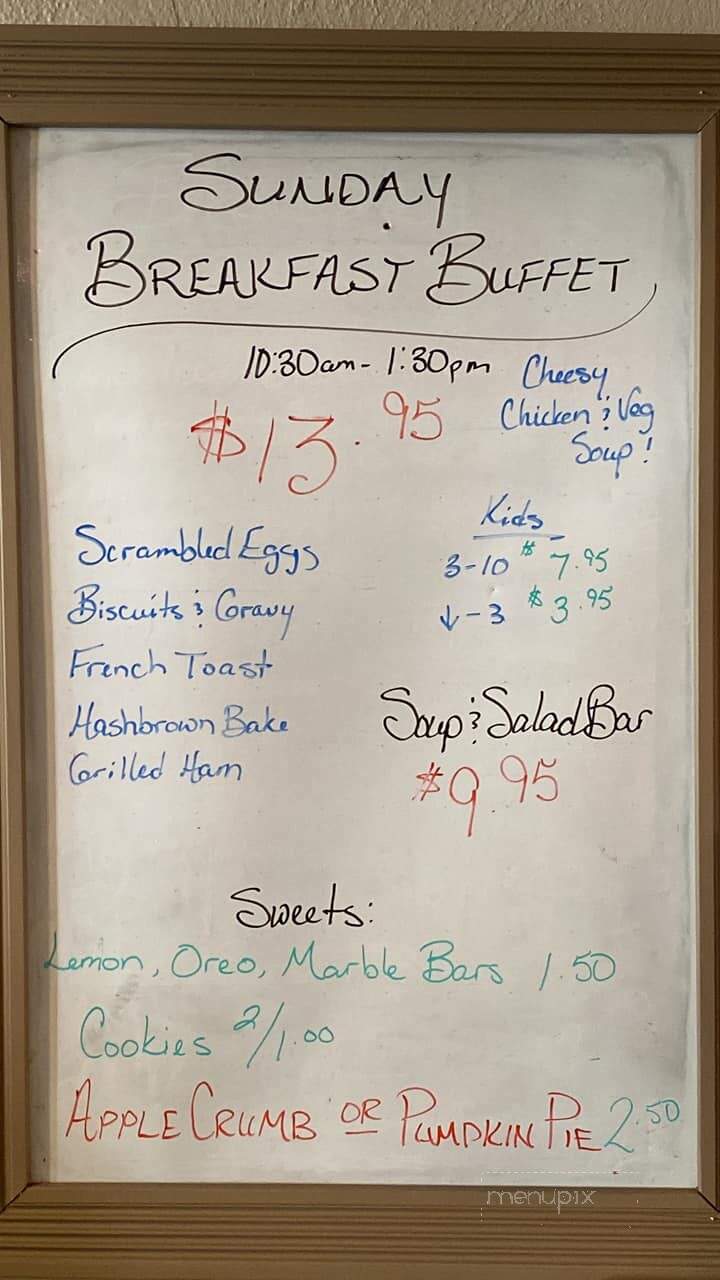 SUNDAY
BREAKFAST BUFFET
10:30am - 1:30pm
$13.95
Cheesy
Chicken & Veg
Soup!
Scrambled Eggs
Biscuits & Gravy
French Toast
Hashbrown Bake
Grilled Ham
Kids
3-10 $7.95
↓-3 $3.95
Soup & Salad Bar
$9.95
Sweets:
Lemon, Oreo, Marble Bars 1.50
Cookies 2/1.00
APPLE CRUMB OR PUMPKIN PIE 2.50
menupix